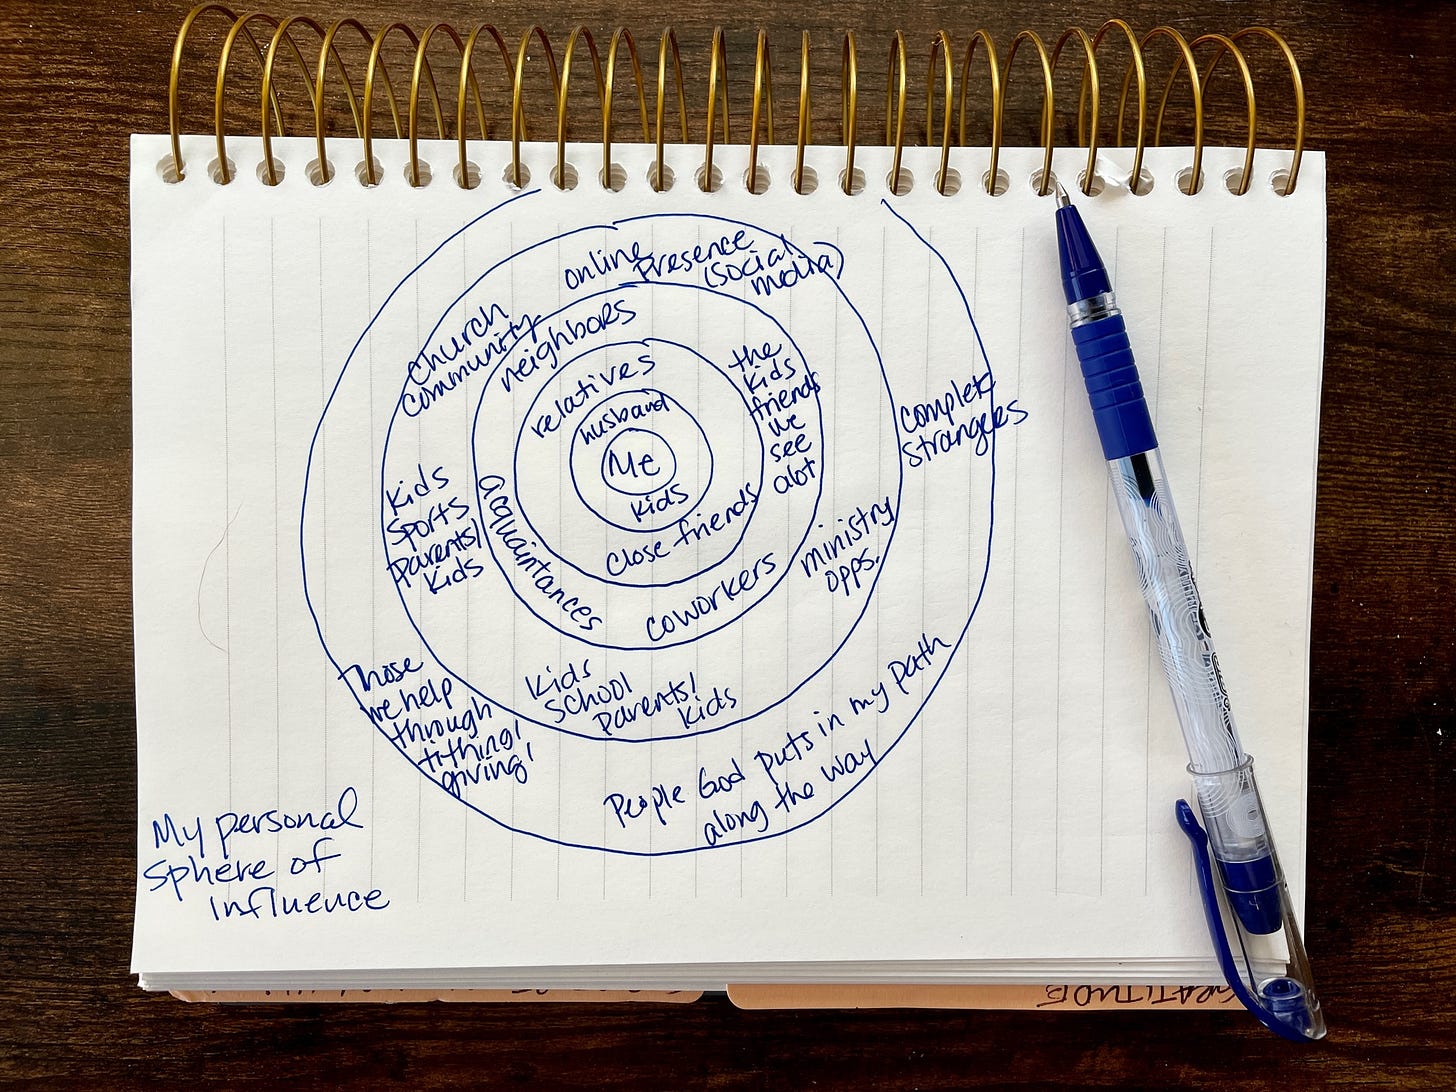 online presence
(social
media)
Church
community
neighbors
the
kids
friends
we
see
alot
relatives
husband
Me
kids
close friends
acquaintances
coworkers
complete
strangers
kids
sports
parents/
kids
ministry
opps.
Those
we help
through
tithing/
giving!
kids
school
parents/
kids
People God puts in my path
along the way
My personal
sphere of
influence
GRATITUDE